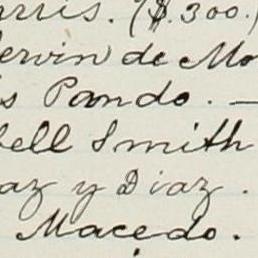 rris. ($300.)
ervin de Mo
s Pando. —
bell Smith
az y Diaz.
Macedo.